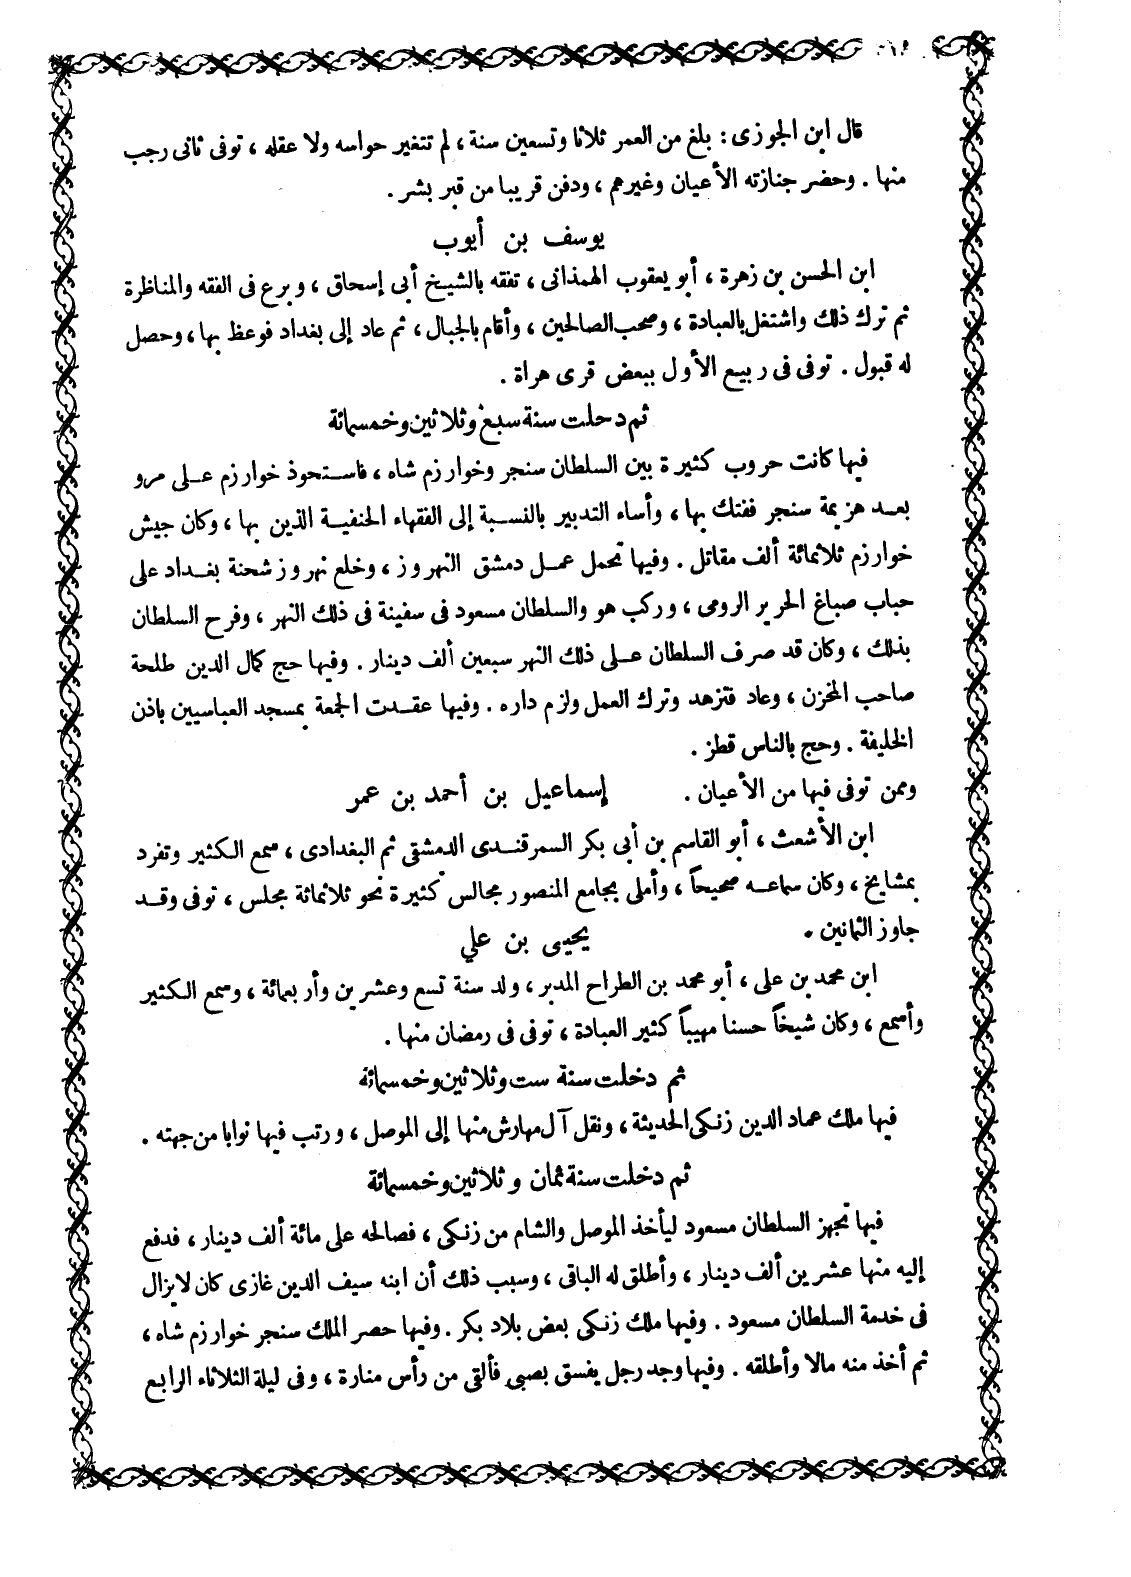 قال ابن الجوزى : بلغ من العمر ثلاثا وتسعين سنة ، لم تتغير حواسه ولا عقله ، توفى ثانى رجب
منها . وحضر جنازته الأعيان وغيرهم ، ودفن قريبا من قبر بشر .
يوسف بن أيوب
ابن الحسن بن زهرة ، أبو يعقوب الهمذانى ، تفقه بالشيخ أبى إسحاق ، وبرع فى الفقه والمناظرة
ثم ترك ذلك واشتغل بالعبادة ، وصحب الصالحين ، وأقام بالجبال ، ثم عاد إلى بغداد فوعظ بها ، وحصل
له قبول . توفى فى ربيع الأول ببعض قرى هراة .
ثم دخلت سنة سبع وثلاثين وخمسمائة
فيها كانت حروب كثيرة بين السلطان سنجر وخوارزم شاه ، فاستحوذ خوارزم على مرو
بعد هزيمة سنجر ففتك بها ، وأساء التدبير بالنسبة إلى الفقهاء الحنفية الذين بها ، وكان جيش
خوارزم ثلاثمائة ألف مقاتل . وفيها تحمل عمل دمشق النهروز ، وخلع نهروز شحنة بغداد على
حباب صباغ الحرير الرومى ، وركب هو والسلطان مسعود فى سفينة فى ذلك النهر ، وفرح السلطان
بذلك ، وكان قد صرف السلطان على ذلك النهر سبعين ألف دينار . وفيها حج كمال الدين طلحة
صاحب المخزن ، وعاد فتزهد وترك العمل ولزم داره . وفيها عقدت الجمعة بمسجد العباسيين باذن
الخليفة . وحج بالناس قطز .
وممن توفى فيها من الأعيان . إسماعيل بن أحمد بن عمر
ابن الأشعث ، أبو القاسم بن أبى بكر السمرقندى الدمشقى ثم البغدادى ، سمع الكثير وتفرد
بمشايخ ، وكان سماعه صحيحاً ، وأملى بجامع المنصور مجالس كثيرة نحو ثلاثمائة مجلس ، توفى وقد
جاوز الثمانين .
يحيى بن علي
ابن محمد بن على ، أبو محمد بن الطراح المدبر ، ولد سنة تسع وعشرين وأربعمائة ، وسمع الكثير
وأسمع ، وكان شيخاً حسنا مهيباً كثير العبادة ، توفى فى رمضان منها .
ثم دخلت سنة ست وثلاثين وخمسمائة
فيها ملك عماد الدين زنكى الحديثة ، ونقل آل مهارش منها إلى الموصل ، ورتب فيها نوابا من جهته .
ثم دخلت سنة ثمان وثلاثين وخمسمائة
فيها تجهز السلطان مسعود ليأخذ الموصل والشام من زنكى ، فصالحه على مائة ألف دينار ، فدفع
إليه منها عشرين ألف دينار ، وأطلق له الباقى ، وسبب ذلك أن ابنه سيف الدين غازى كان لايزال
فى خدمة السلطان مسعود . وفيها ملك زنكى بعض بلاد بكر . وفيها حصر الملك سنجر خوارزم شاه ،
ثم أخذ منه مالا وأطلقه . وفيها وجد رجل يفسق بصبى فألقى من رأس منارة ، وفى ليلة الثلاثاء الرابع